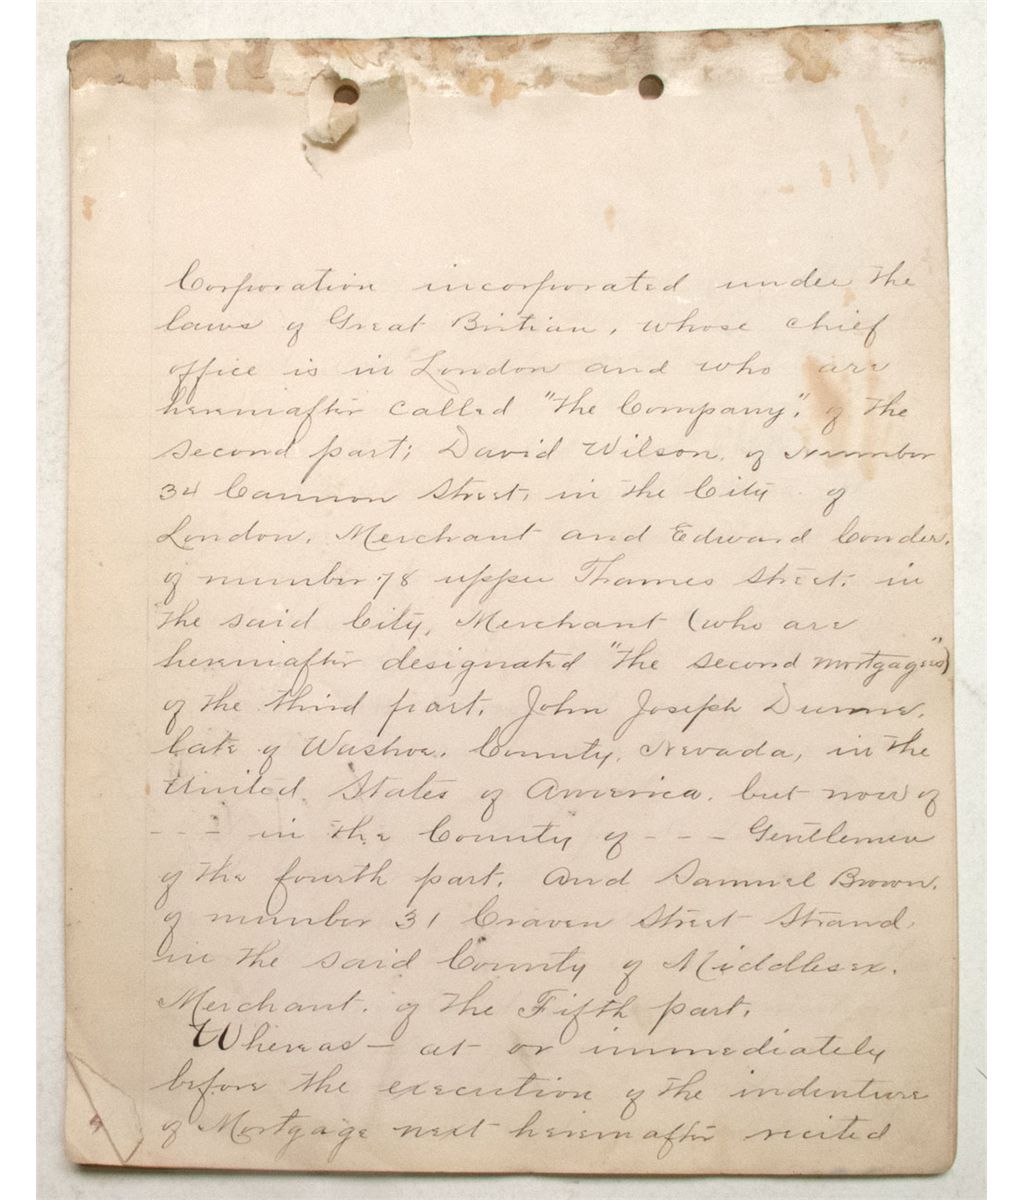 Corporation incorporated under the
laws of Great Birtian, whose chief
office is in London and who are
hereniafter called "the Company", of the
second part; David Wilson, of Number
34 Cannon Street, in the City of
London, Merchant and Edward Conder,
of number 78 upper Thames Street, in
the said City, Merchant (who are
hereniafter designated "the second mortgagees")
of the third part, John Joseph Dunne,
late of Washoe, County, Nevada, in the
United States of America, but now of
- - - in the County of - - - Gentlemen
of the fourth part, and Samuel Brown,
of number 31 Craven Street Strand,
in the said County of Middlesex,
Merchant, of the Fifth part.
Whereas - at or immediately
before the execution of the indenture
of Mortgage next hereinafter recited